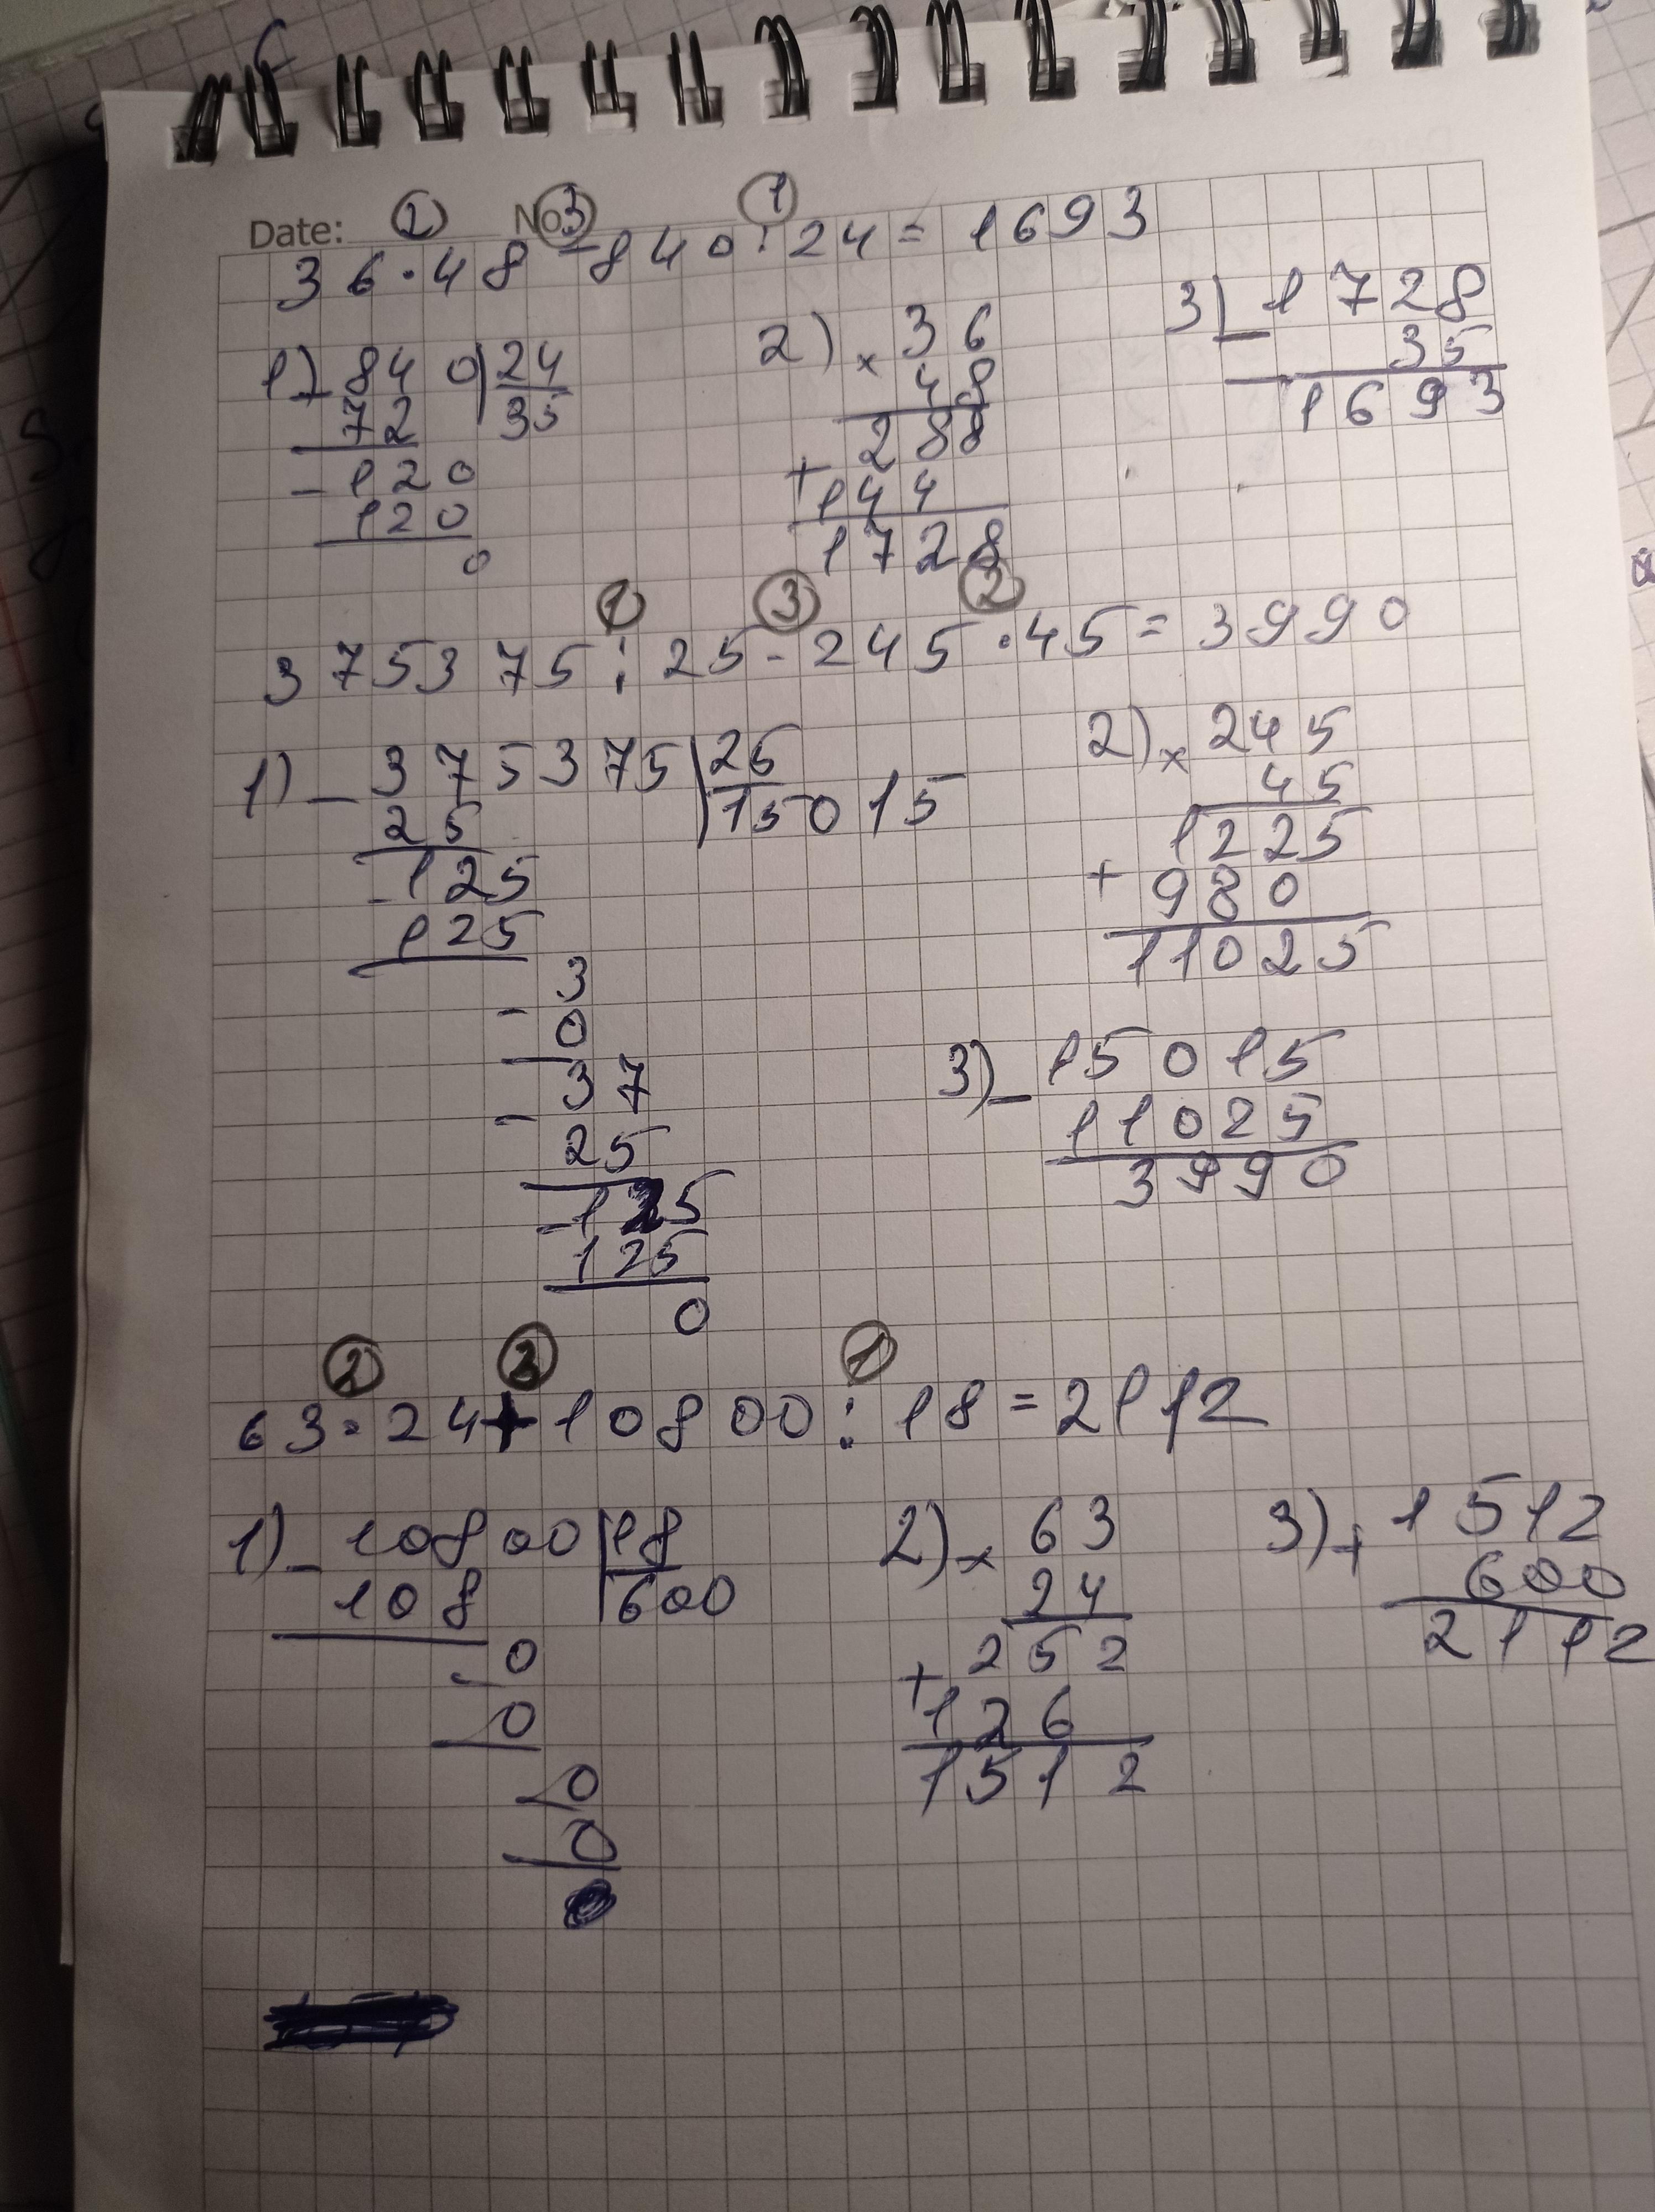 Date: ② No ③ ①
36·48-840:24=1693
1) -840|24
72 35
-120
120
0
2) ×36
48
288
+144
1728
3) -1728
35
1693
① ③ ②
375375:25-245·45=3990
1) -375375|25
25 15015
-125
125
-3
0
-37
25
-125
125
0
2) ×245
45
1225
+980
11025
3) -15015
11025
3990
② ③ ①
63·24+10800:18=2112
1) -10800|18
108 600
-0
0
-0
0
2) ×63
24
252
+126
1512
3) +1512
600
2112